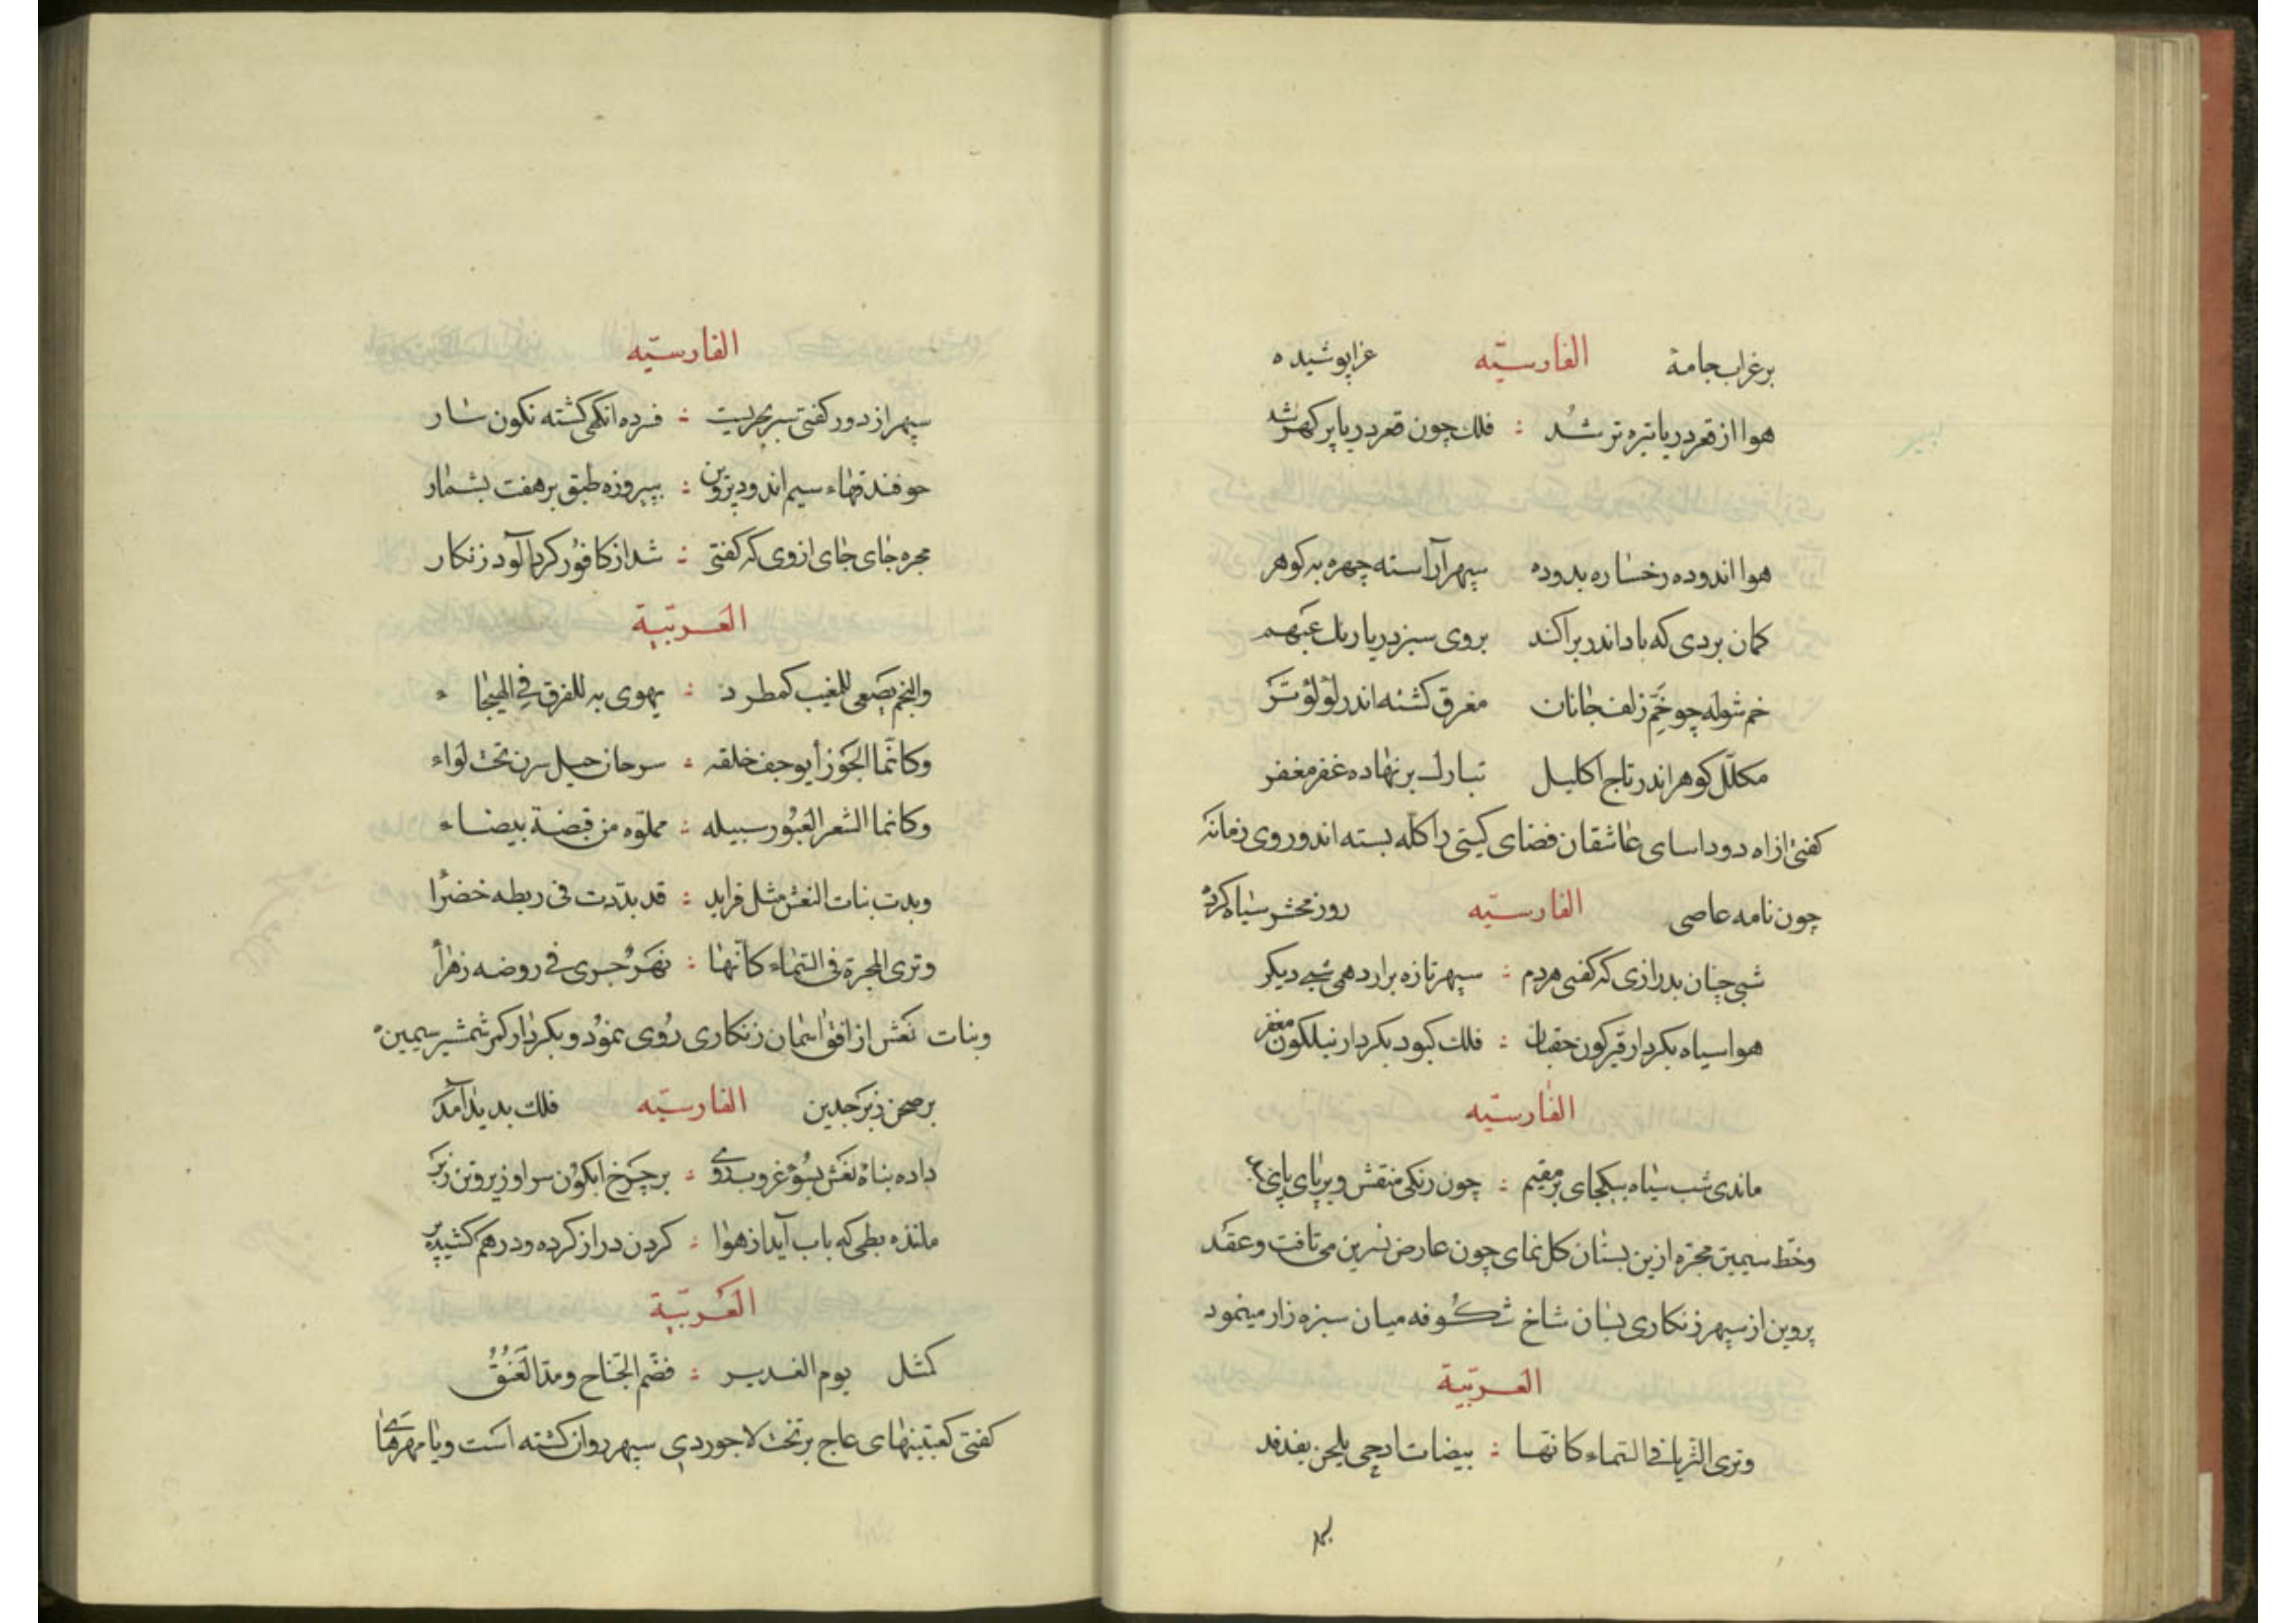 برغراب جامة الفارسیّه عزا پوشیده
هوا از قعر دریا تیره تر شد : فلك چون قعر دریا پر كهر شد
هوا اندوده رخساره بدوده سپهر آراسته چهره به كوهر
كمان بردی كه باد اندر براكند بروی سبز دریا ربك عبهر
خم شوله چو خم زلف جانان مغرق كشته اندر لؤلؤ تر
مكلّل كوهر اندر تاج اكلیل تبارك بر نهاده غفر مغفر
كفتی از اه دوداسای عاشقان فضای كیتی را كله بسته اند و روی زمانه
چون نامه عاصی الفارسیّه روز محشر سیاه كرده
شبی چنان بدرازی كه كفتی هر دم : سپهر تازه برارد همی شبی دیكر
هوا سیاه بكردار قیركون خفتان : فلك كبود بكردار نیلكون مغفر
الفارسیّه
ماندی شب سیاه بیكجای بر مقیم : چون زنكی منقش و بر پای پای
وخط سیمین مجرّه ازین بستان كل نمای چون عارض نسرین می تافت و عقد
پروین از سپهر زنكاری بسان شاخ شكوفه میان سبزه زار مینمود
العربّیة
وتری الثریا فی السماء كانها : بیضات ادحی یلحن بفدفد
الفارسیّه
سپهر از دور كفتی سبز بحریست : فرده انكهی كشته نكون سار
چو فندقهاء سیم اندود پروین : بپیروزه طبق بر هفت بشمار
مجره جای جای از وی كه كفتی : شد از كافور كرد آلود زنكار
العربّیة
والنجم یصغی للمغیب كمطرد : یهوی به للفرق فی الهیجاء
وكانّما الجوزا یوجف خلقه : سرحان خیل سرن تحت لواء
وكانما الشعر العبور سبیله : مملوّه من قبضة بیضاء
وبدت بنات النعش مثل فراید : قد بدّدت فی ریطه خضرا
وتری المجرة فی السماء كانها : نهر جری فی روضه زهرا
وبنات نعش از افق اسمان زنكاری روی نمود و بكردار كمر شمشیر سیمین
بر صحن زبرجدین الفارسیّه فلك بدید آمد
داده بناة نعش بسوی غروب روی : بر چرخ ابكون سر او زیر و تن زبر
ماننده بطی كه باب آید از هوا : كردن دراز كرده و در هم كشیده پر
العربّیة
كمثل یوم الغدیر : فضم الجناح ومد العنق
كفتی كعبتینهای عاج بر تخت لاجوردی سپهر روان كشته است و یا مهرهای